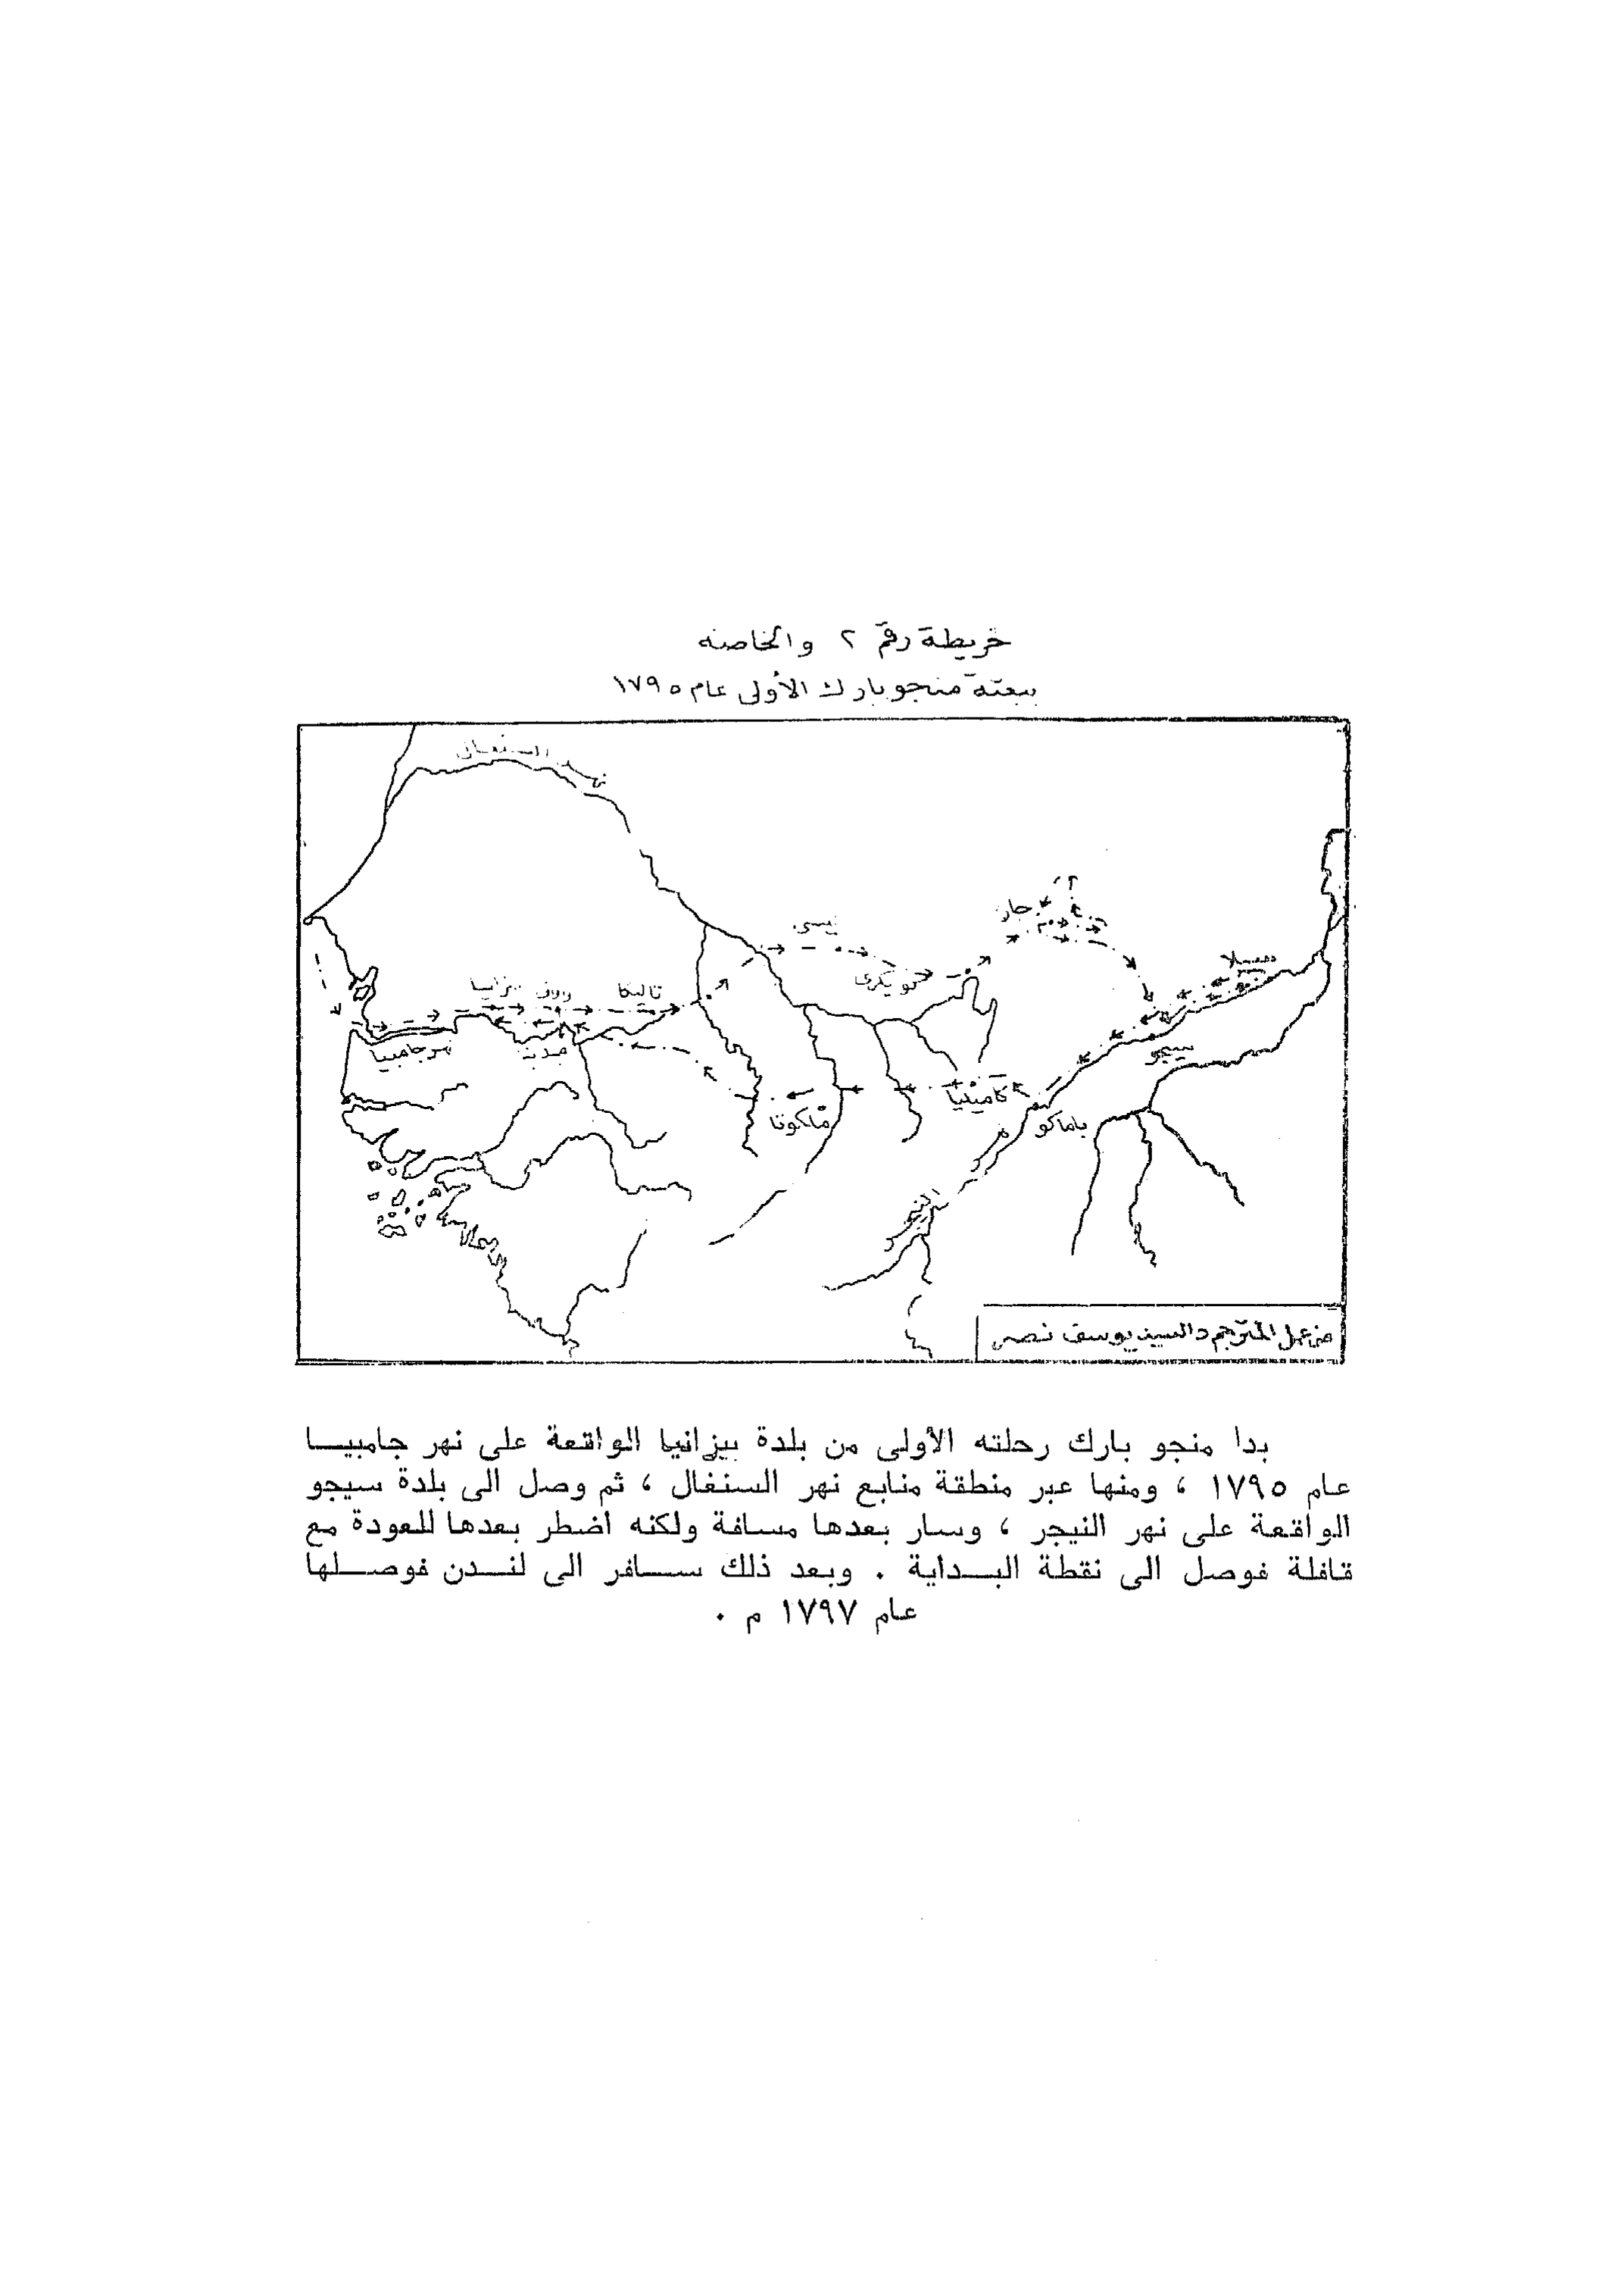 خريطة رقم ٢ والخاصة
ببعثة منجو بارك الأولى عام ١٧٩٥
نهر السنغال
جار
سيلا
تاليكا
نهر جامبيا
مدينة
سيجو
كامينيا
ملكوتا
باماكو
من عمل المترجم د السيد يوسف نصر
بدا منجو بارك رحلته الأولى من بلدة بيزانيا الواقعة على نهر جامبيا
عام ١٧٩٥ ، ومنها عبر منطقة منابع نهر السنغال ، ثم وصل الى بلدة سيجو
الواقعة على نهر النيجر ، وسار بعدها مسافة ولكنه اضطر بعدها للعودة مع
قافلة فوصل الى نقطة البداية . وبعد ذلك سافر الى لندن فوصلها
عام ١٧٩٧ م .